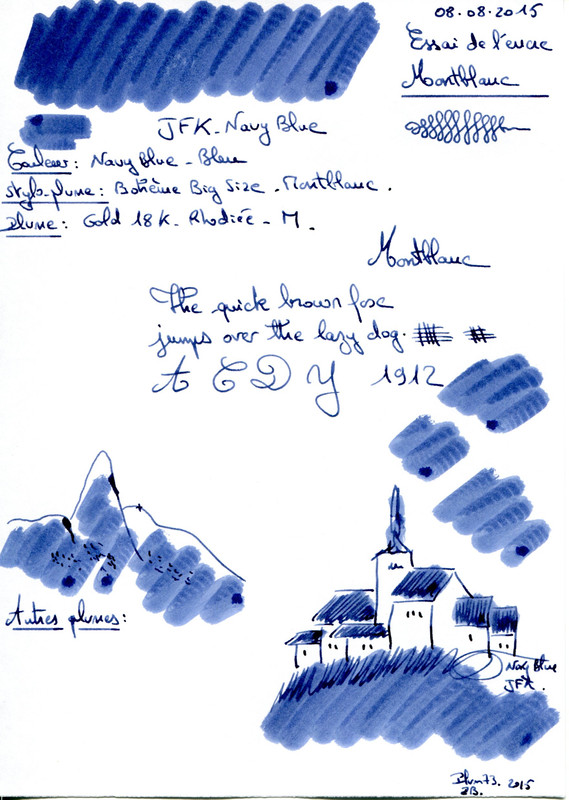 08.08.2015
Essai de l'encre
Montblanc
JFK - Navy Blue
Couleur : Navy Blue - Bleu
Stylo-plume : Bohème Big Size - Montblanc .
Plume : Gold 18 K - Rhodiée - M .
Montblanc
The quick brown fox
jumps over the lazy dog.
A C D Y 1912
Autres plumes :
Navy blue
JFK .
Plum73. 2015